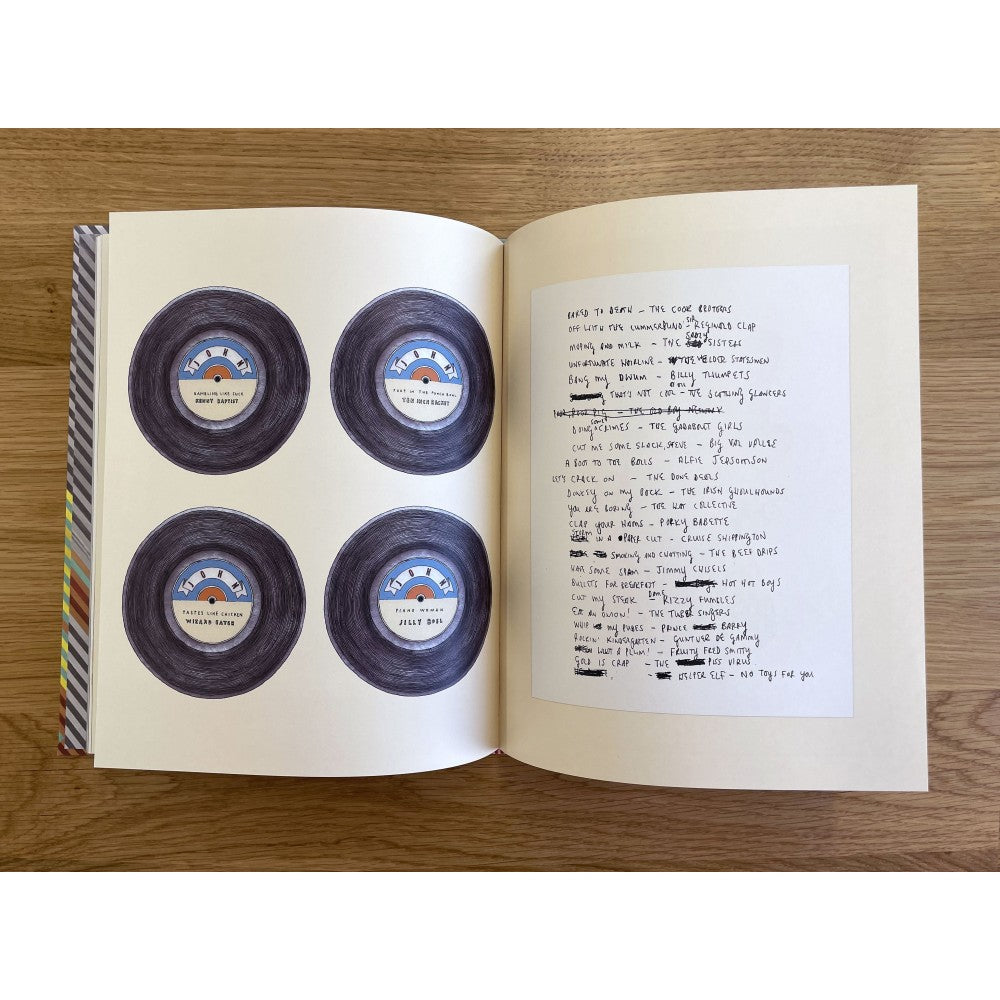 JOHN
GAMBLING LIKE FUCK
KENNY BAPTIST
JOHN
TURT IN THE PUNCH BOWL
JOHN
TASTES LIKE CHICKEN
WIZARD EATER
JOHN
PIANO WOMAN
JILLY BOEL
BAKED TO DEATH – THE COOK BROTHERS
OFF WITH THE CUMMERBUND – SIR REGINALD CLAP
MOPING AND MILK – THE SISTERS
UNFORTUNATE HAIRLINE – THE ELDER STATESMEN
BANG MY DRUM – BILLY THUMPETS
THAT'S NOT COOL – THE SCOTLING GLANCERS
– THE OLD BOY NETWORK
DOING SOME CRIMES – THE GADABOUT GIRLS
CUT ME SOME SLACK, STEVE – BIG VAL
A BOOT TO THE BALLS – ALFIE
LET'S CRACK ON – THE DONE DEALS
DONKEY ON MY BACK – THE IRISH GHOULHOUNDS
YOU ARE BORING – THE HAT COLLECTIVE
CLAP YOUR HAMS – PORKY BABETTE
IN A PAPER CUT – CRUISE SHIPPINGTON
SMOKING AND CHATTING – THE BEEF DRIPS
HAVE SOME SPAM – JIMMY CHISELS
BULLETS FOR BREAKFAST – HOT HOT BOYS
CUT MY STEAK – DAME RIZZY FUMBLES
EAT AN ONION! – THE TUBER SINGERS
WHIP MY PUBES – PRINCE BARRY
ROCKIN' KINDERGARTEN – GUNTHER DE GAMMY
LIKE A PLUM! – FRUITY FRED SMITTY
GOLD IS CRAP – THE PISS VIRUS
– HELPER ELF – NO TOYS FOR YOU